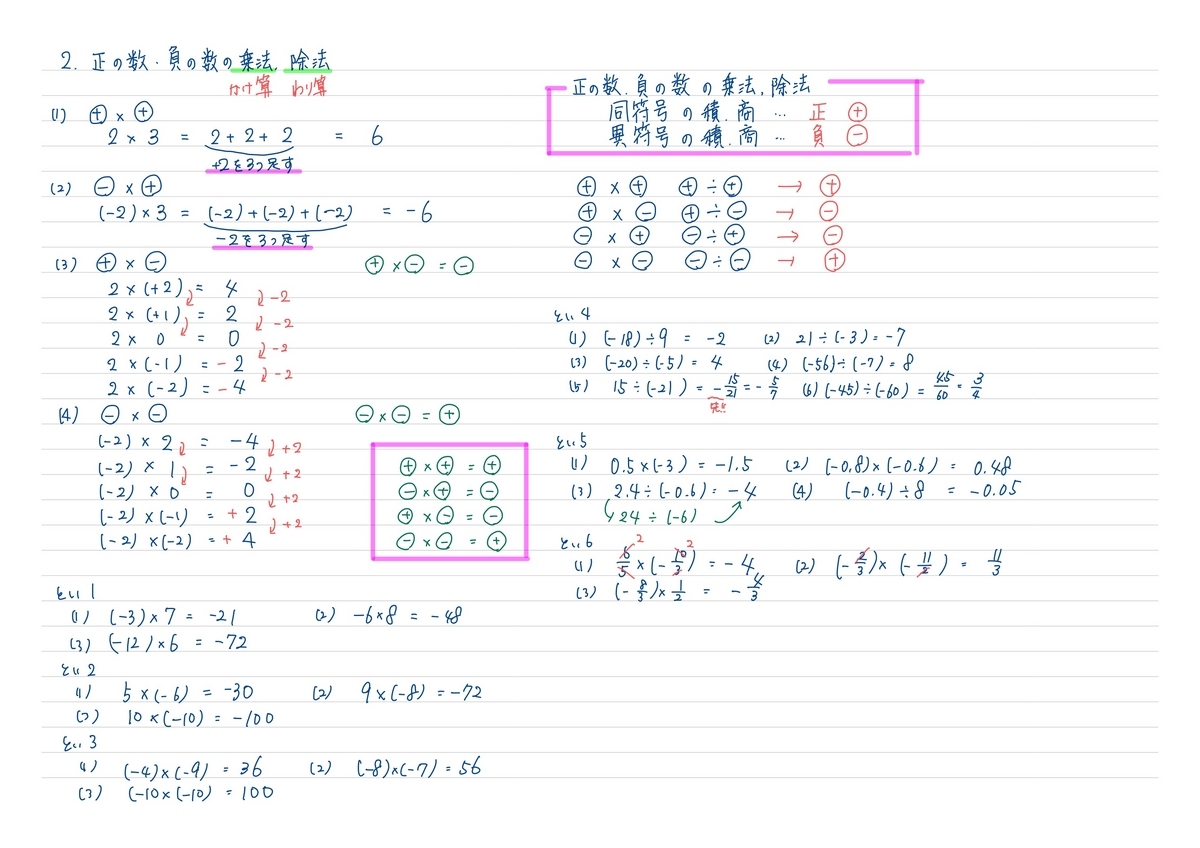 2. 正の数・負の数の乗法, 除法
かけ算 わり算
(1) ⊕ × ⊕
2 × 3 = 2 + 2 + 2 = 6
+2を3つ足す
(2) ⊖ × ⊕
(-2) × 3 = (-2) + (-2) + (-2) = -6
-2を3つ足す
(3) ⊕ × ⊖ ⊕ × ⊖ = ⊖
2 × (+2) = 4
-2
2 × (+1) = 2
-2
2 × 0 = 0
-2
2 × (-1) = -2
-2
2 × (-2) = -4
(4) ⊖ × ⊖ ⊖ × ⊖ = ⊕
(-2) × 2 = -4
+2
(-2) × 1 = -2
+2
(-2) × 0 = 0
+2
(-2) × (-1) = +2
+2
(-2) × (-2) = +4
⊕ × ⊕ = ⊕
⊖ × ⊕ = ⊖
⊕ × ⊖ = ⊖
⊖ × ⊖ = ⊕
とい1
(1) (-3) × 7 = -21 (2) -6 × 8 = -48
(3) (-12) × 6 = -72
とい2
(1) 5 × (-6) = -30 (2) 9 × (-8) = -72
(3) 10 × (-10) = -100
とい3
(1) (-4) × (-9) = 36 (2) (-8) × (-7) = 56
(3) (-10 × (-10) = 100
正の数, 負の数 の 乗法, 除法
同符号 の 積, 商 … 正 ⊕
異符号 の 積, 商 … 負 ⊖
⊕ × ⊕ ⊕ ÷ ⊕ → ⊕
⊕ × ⊖ ⊕ ÷ ⊖ → ⊖
⊖ × ⊕ ⊖ ÷ ⊕ → ⊖
⊖ × ⊖ ⊖ ÷ ⊖ → ⊕
とい4
(1) (-18) ÷ 9 = -2 (2) 21 ÷ (-3) = -7
(3) (-20) ÷ (-5) = 4 (4) (-56) ÷ (-7) = 8
(5) 15 ÷ (-21) = -15/21 = -5/7 (6) (-45) ÷ (-60) = 45/60 = 3/4
とい5
(1) 0.5 × (-3) = -1.5 (2) (-0.8) × (-0.6) = 0.48
(3) 2.4 ÷ (-0.6) = -4 (4) (-0.4) ÷ 8 = -0.05
24 ÷ (-6)
とい6
2 2
(1) 6/5 × (-10/3) = -4 (2) (-2/3) × (-11/2) = 11/3
(3) (-8/3) × 1/2 = -4/3